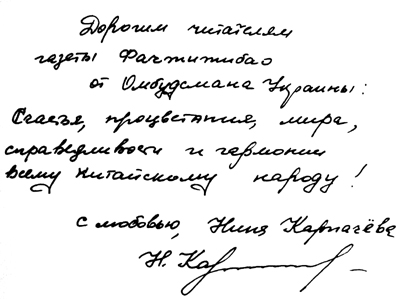 Дорогим читателям
газеты Фачжижибао
от Омбудсмана Украины:
Счастья, процветания, мира,
справедливости и гармонии
всему китайскому народу!
с любовью, Нина Карпачёва
Н. Кар